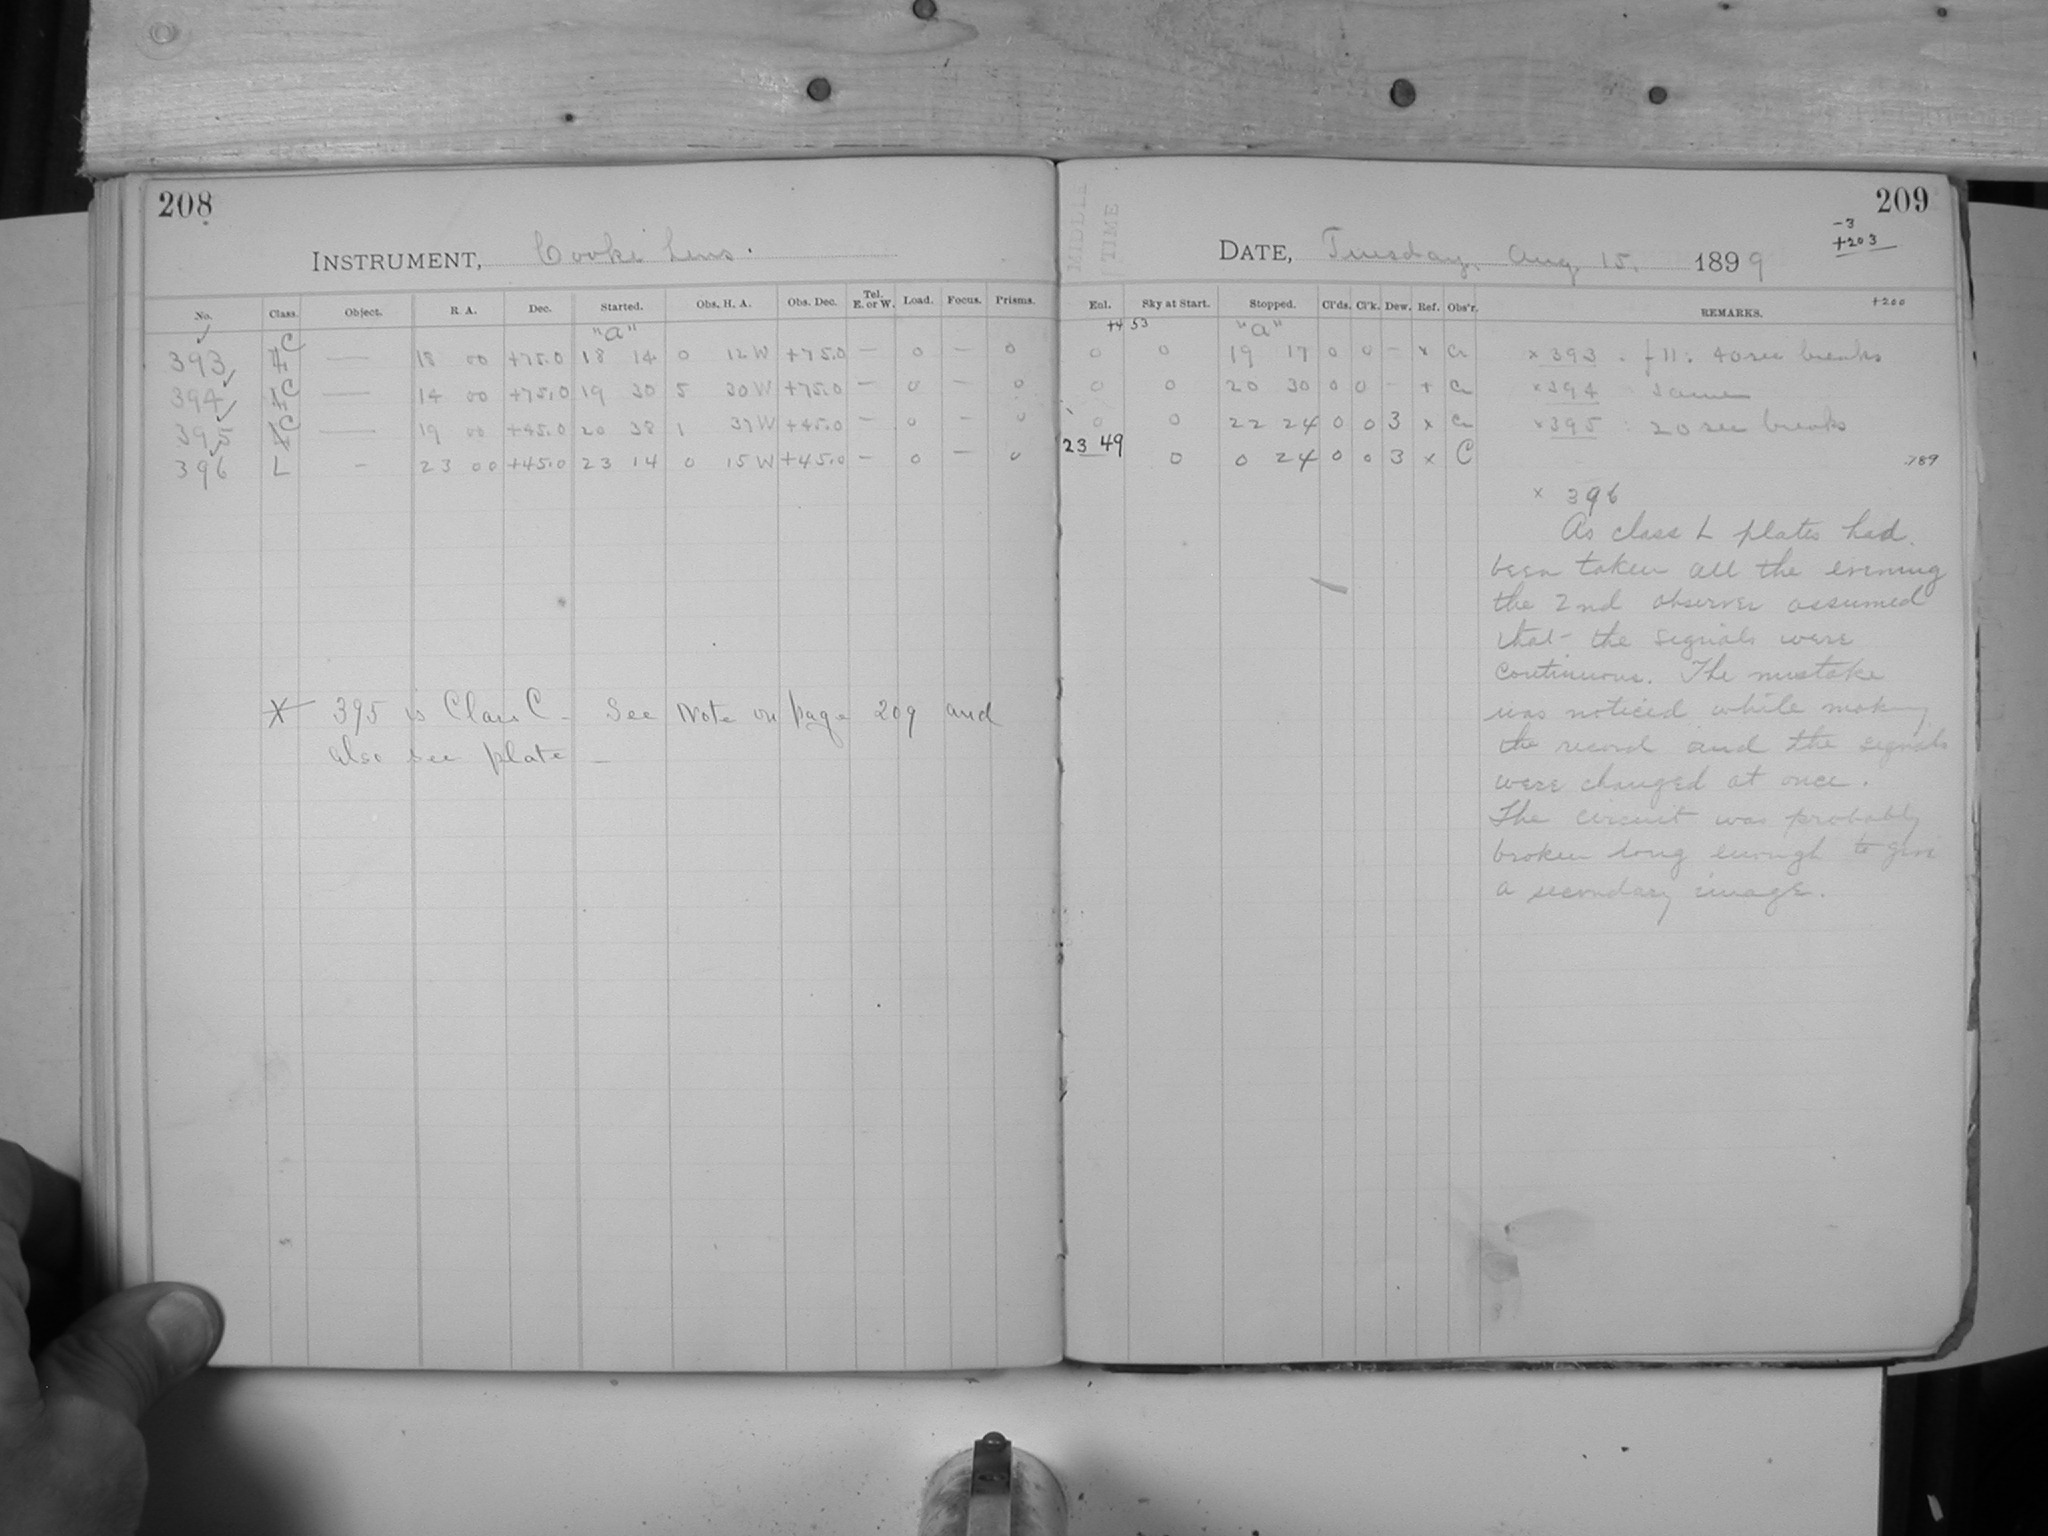 208
INSTRUMENT, Cooke Lens.
No. Class. Object. R. A. Dec. Started. Obs. H. A. Obs. Dec. Tel. E. or W. Load. Focus. Prisms.
"a"
393 C — 18 00 +75.0 18 14 0 12 W +75.0 — 0 — 0
394 C — 14 00 +75.0 19 30 5 30 W +75.0 — 0 — 0
395 C — 19 00 +45.0 20 38 1 37 W +45.0 — 0 — 0
396 L — 23 00 +45.0 23 14 0 15 W +45.0 — 0 — 0
X 395 is Class C - See Note on page 209 and
also see plate —
MIDDLE
TIME
209
-3
+203
DATE, Tuesday, Aug. 15. 1899
+200
Eol. Sky at Start. Stopped. Cl'ds. Cl'k. Dew. Ref. Obs'r. REMARKS.
+4 53 "a"
0 0 19 17 0 0 — x × 393 . f 11 : 40 sec breaks
0 0 20 30 0 0 — × 394 same
0 0 22 24 0 0 3 x × 395 : 20 sec breaks
23 49 0 0 24 0 0 3 x C
789
× 396
As class L plates had
been taken all the evening
the 2nd observer assumed
that the signals were
continuous. The mistake
was noticed while making
the record and the signals
were changed at once.
The circuit was probably
broken long enough to give
a secondary image.